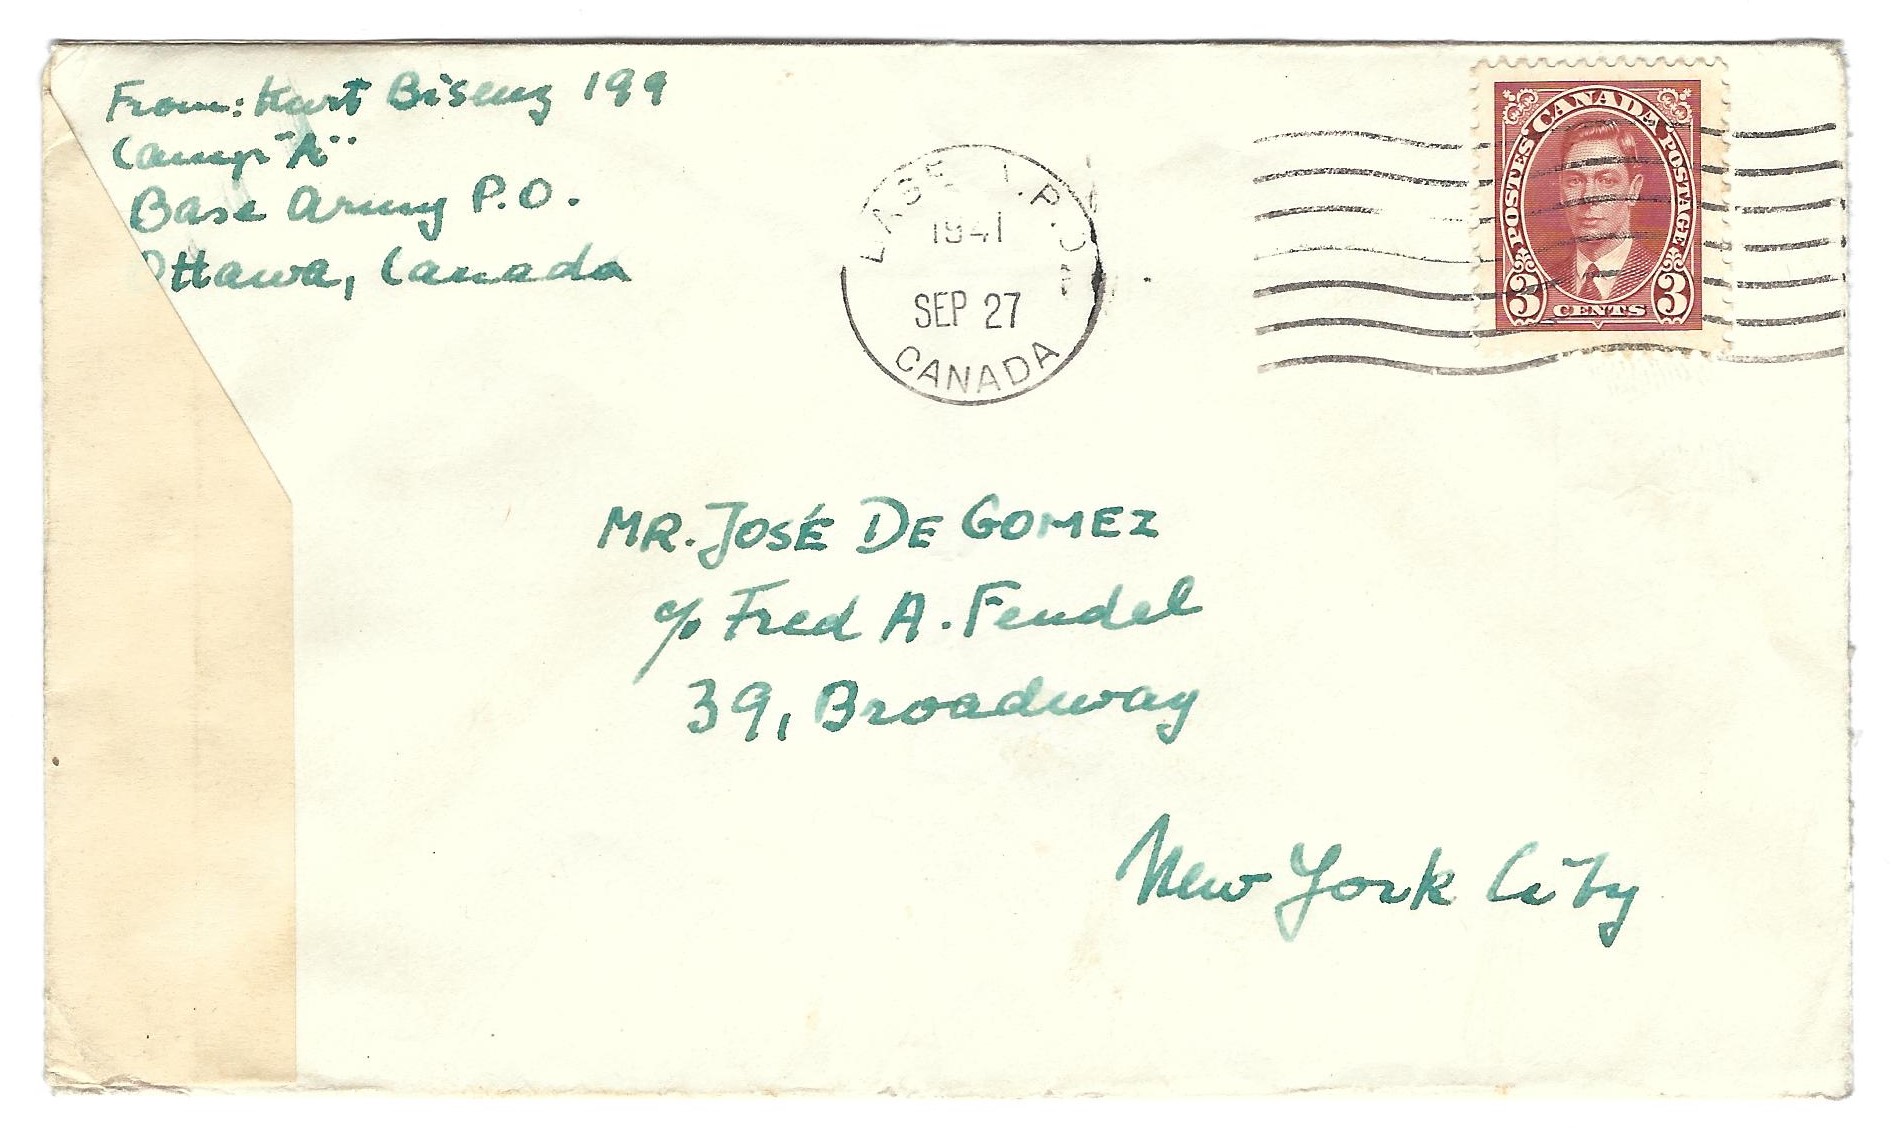 From: Kurt 199
Camp "A"
Base Army P.O.
Ottawa, Canada
BASE A.P.O
1941
SEP 27
CANADA
POSTES CANADA POSTAGE
3 CENTS 3
MR. JOSÉ DE GOMEZ
c/o Fred A. Fendel
39, Broadway
New York City